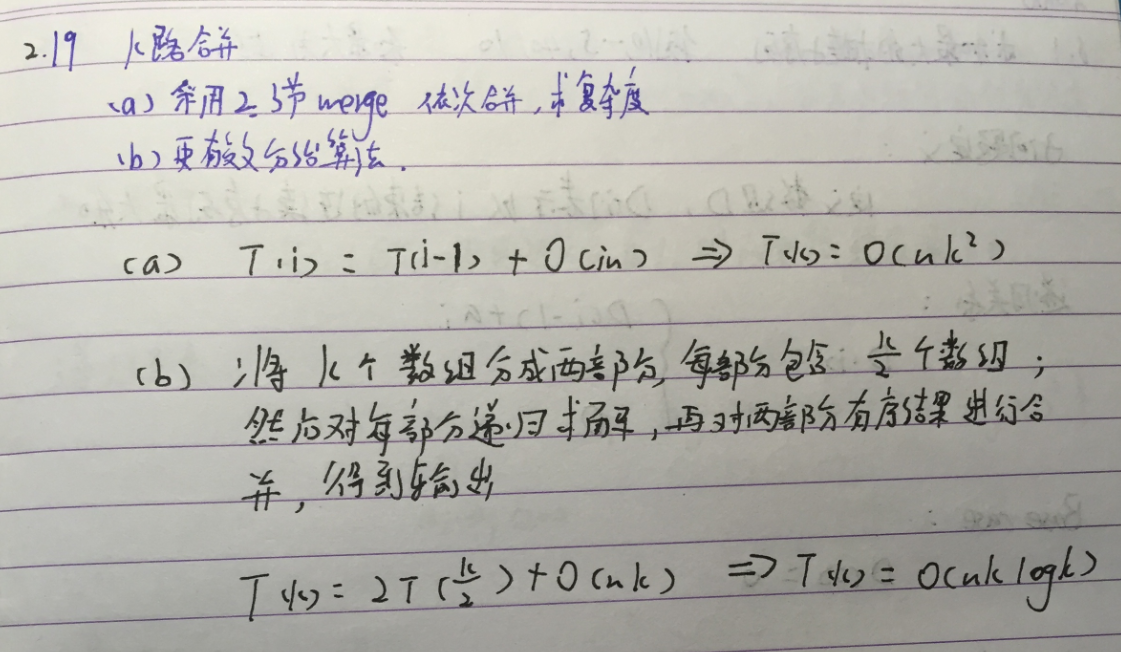 2.19 k路合并
(a) 采用2.3节merge 依次合并,求复杂度
(b) 更有效分治算法.
(a) T(i) = T(i-1) + O(in) ⇒ T(k) = O(nk²)
(b) 将k个数组分成两部分,每部分包含 k/2 个数组;
然后对每部分递归求解,再对两部分有序结果进行合
并,得到输出
T(k) = 2T(k/2) + O(nk) ⇒ T(k) = O(nk logk)
Base case :